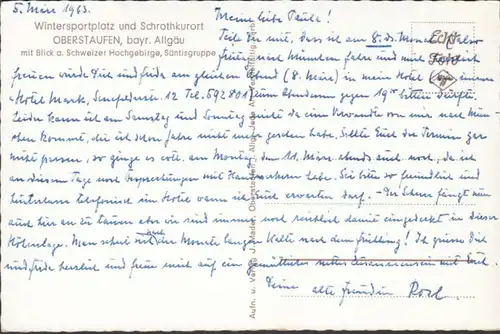 5. März 1963.
Wintersportplatz und Schrothkurort
OBERSTAUFEN, bayr. Allgäu
mit Blick a. Schweizer Hochgebirge, Säntisgruppe
Echte
Foto
Meine liebe Paula!
Teile Dir mit, dass ich am 8. ds. Monats
nach München fahre und mich sehr
freuen würde Dich und Frida am gleichen Abend (8. März) in mein Hotel
"Hotel Mark, Senefelderstr. 12 Tel. 592801 zum Abendessen gegen 19 Uhr bitten dürfte.
Leider kann ich am Samstag und Sonntag nicht da eine Verwandte von mir nach Mün-
chen kommt, die ich schon Jahre nicht mehr gesehen habe. Sollte Euch der Termin gar
nicht passen, so ginge es evtl. am Montag, den 11. März abends auch noch, da ich
an diesem Tage noch Besprechungen mit habe. Sei bitte so freundlich und
hinterlasse telefonisch im Hotel wann ich Euch erwarten darf. - Der Schnee fängt nun
auch hier an zu tauen aber wir sind immer noch reichlich damit eingedeckt in dieser
Höhenlage. Man sehnt sich nach der Monate langen Kälte nach dem Frühling! Ich grüsse Dich
und Frida herzlich und freue mich auf ein gemütliches Zusammensein mit Euch.
Deine alte Freundin Rosl